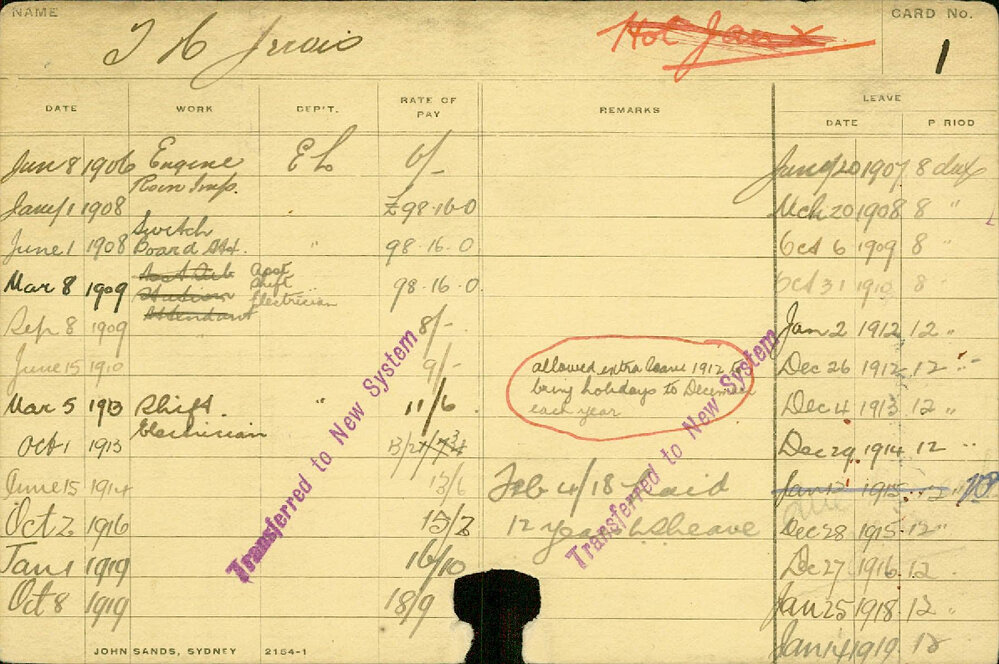 NAME
CARD No.
T H
Hol Jan
1
DATE WORK DEP'T. RATE OF PAY REMARKS LEAVE
DATE PERIOD
Jun 8 1906 Engine E L 6/- 1907 8 days
Room Imp.
Jany 1 1908 £98-16-0 Mch 20 1908 8 "
June 1 1908 Switch Board Att. " 98-16-0 Oct 6 1909 8 "
Mar 8 1909 Act Sub Station Attendant Asst Shift Electrician 98-16-0 Oct 31 1910 8 "
Sep 8 1909 8/- Jan 2 1912 12 "
June 15 1910 9/- allowed extra leave 1912 to Dec 26 1912 12 "
bring holidays to December
each year
Mar 5 1913 Shift Electrician " 11/6 Dec 4 1913 12 "
Oct 1 1913 Dec 29 1914 12 "
June 15 1914 13/6 Feb 4/18 Paid Jan 12 1915
Oct 2 1916 15/2 12 years Dec 28 1915 12 "
Jan 1 1919 16/10 Dec 27 1916 12
Oct 8 1919 18/9 Jan 25 1918 12 "
Jan 14 1919 12
Transferred to New System
Transferred to New System
JOHN SANDS, SYDNEY 2154-1